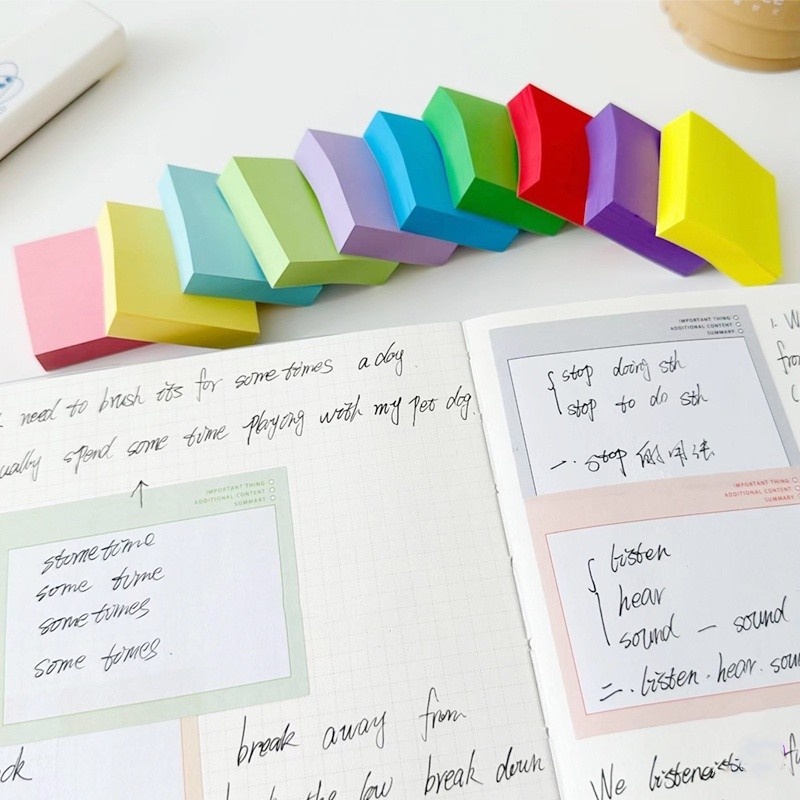 need to brush its for sometimes a day.
ually spend some time playing with my pet dog.
↑
IMPORTANT THING
ADDITIONAL CONTENT
SUMMARY
stometime
some time
sometimes
some times.
break away from
the law break down
IMPORTANT THING
ADDITIONAL CONTENT
SUMMARY
stop doing sth
stop to do sth
一. stop 的用法
IMPORTANT THING
ADDITIONAL CONTENT
SUMMARY
listen
hear
sound — sound
二. listen. hear. soun
We
1. W